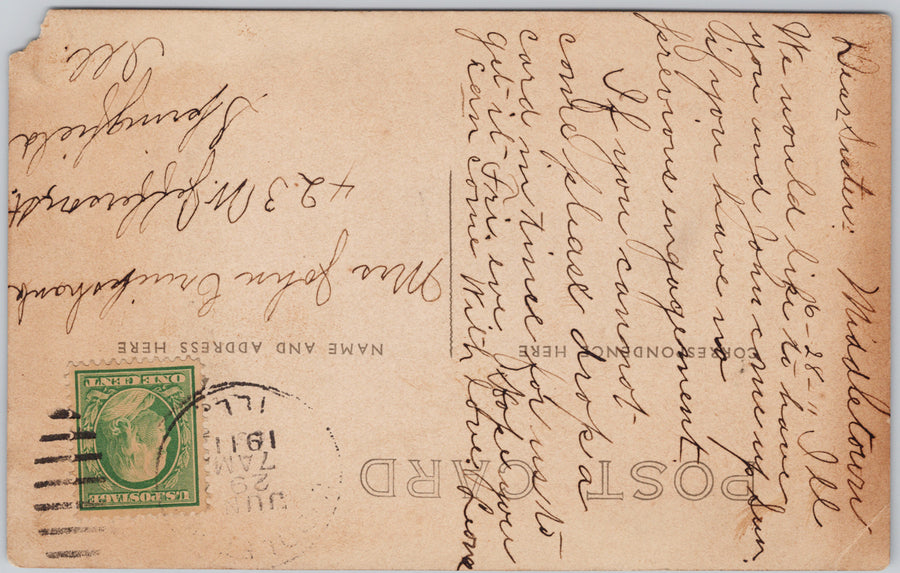 POST CARD
CORRESPONDENCE HERE
NAME AND ADDRESS HERE
Middletown
6-28-11 Ill
Dear Sister:
We would like to have
you and John come up Sun.
if you have no
previous engagement
If you cannot
come please drop a
card in time for us to
get it Fri eve. Hope you
can come With Love
Mrs John Cruikshank
423 W. Jefferson St.
Springfield
Ill.
U.S. POSTAGE
ONE CENT
JUN
29
7 AM
1911
ILL.